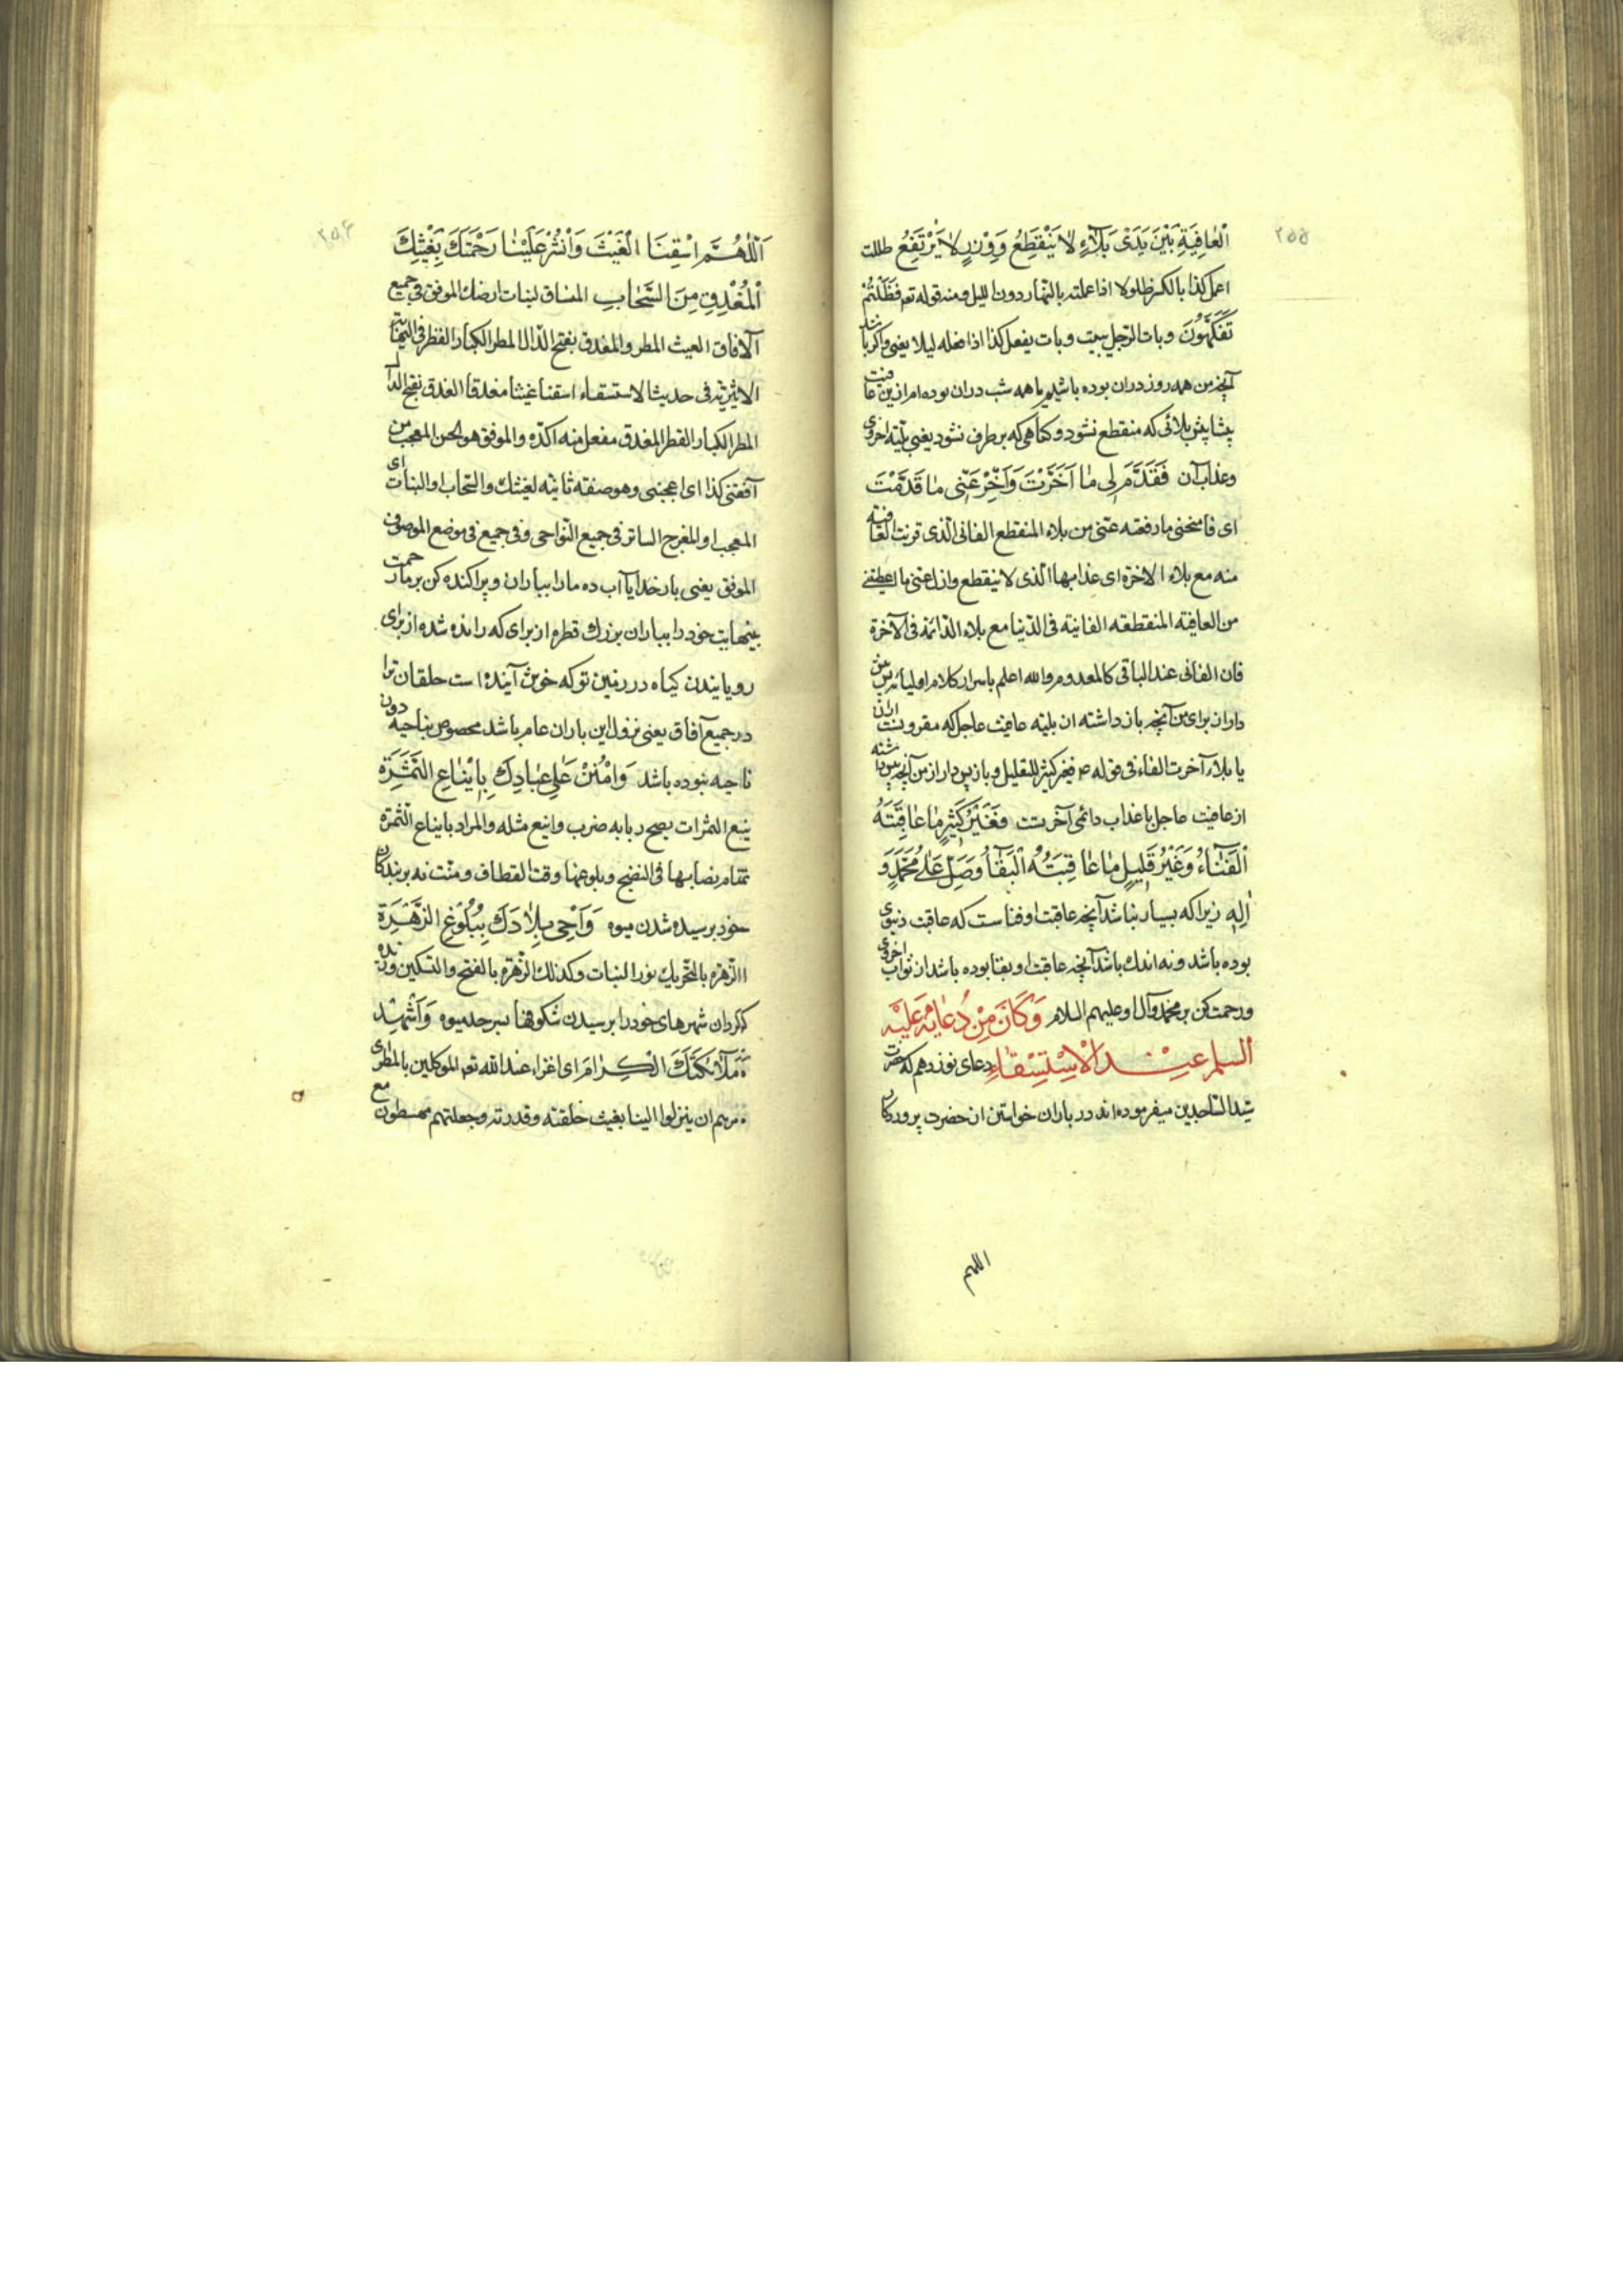 ٢۵۵
الْعٰافِيَةِ بَيْنَ يَدَىْ بَلٰٓاءٍ لٰا يَنْقَطِعُ وَوِزْرٍ لٰا يَرْتَفِعُ ظللت
اعمل كذا بالكسر ظلولا اذا عملته بالنهار دون الليل ومنه قوله تع فَظَلْتُمْ
تَفَكَّهُونَ وبات الرجل يبيت وبات يفعل كذا اذا فعله ليلا يعنى واكر باشد
آنچه من همه روز دران بوده باشم يا همه شب دران بوده ام ازين عافيت
پيشاپيش بلائى كه منقطع نشود وكناهى كه برطرف نشود يعنى بليّه اخروى
وعذاب آن فَقَدِّمْ لِى مٰا اَخَّرْتَ وَاَخِّرْ عَنِّى مٰا قَدَّمْتَ
اى فامنحنى ما رفقه عنى من بلاء المنقطع الفانى الّذى قرنت العافية
منه مع بلاء الاخرة اى عذابها الّذى لا ينقطع وازل عنى ما اعطيتنى
من العافية المنقطعه الفانية فى الدّنيا مع بلاء الدّائمة فى الآخرة
فان الفانى عند الباقى كالمعدوم والله اعلم باسرار كلام اوليائه پيش
دار از براى من آنچه باز داشته از بليّه عافيت عاجل كه مقرونست
يا بلاء آخرت الفاء فى قوله ص فغير كثير للتعليل وباز پس دار از من آنچه پيش داشته
از عافيت عاجل با عذاب دائمى آخرت فَغَيْرُ كَثِيرٍ مٰا عٰاقِبَتُهُ
الْفَنٰٓاءُ وَغَيْرُ قَلِيلٍ مٰا عٰاقِبَتُهُ الْبَقٰٓاءُ وَصَلِّ عَلٰى مُحَمَّدٍ وَ
اٰلِهِ زيرا كه بسيار نباشد آنچه عاقبت او فناست كه عاقبت دنيوى
بوده باشد ونه اندك باشد آنچه عاقبت او بقا بوده باشد از ثواب اخروى
ورحمت كن بر محمد وآل او عليهم السلام وَكٰانَ مِنْ دُعٰائِهِ عَلَيْهِ
السلم عِنْدَ الْاِسْتِسْقٰاءِ دعاى نوزدهم كه حضرت
سيّد السّاجدين ميفرموده اند در باران خواستن از حضرت پروردكار
اللهم
٢۵۶
اَللّٰهُمَّ اسْقِنَا الْغَيْثَ وَانْشُرْ عَلَيْنٰا رَحْمَتَكَ بِغَيْثِكَ
الْمُغْدِقِ مِنَ السَّحٰابِ المنساق لنبات ارضك الموفق فى جميع
الآفاق الغيث المطر والمغدق بفتح الدّال المطر الكبار القطر فى النهاية
الاثيرية فى حديث الاستسقاء اسقنا غيثا مغدقا الغدق بفتح الدال
المطر الكبار القطر المغدق مفعل منه اكّده والموفق هو الحسن المعجب من
آنقنى كذا اى اعجبنى وهو صفة ثانية لغيثك والسّحاب او النبات اى
المعجب او المفرح الساتر فى جميع النّواحى وفى جميع فى موضع الموصوف
الموفق يعنى بار خدايا آب ده ما را بباران وپراكنده كن بر ما رحمت
بينهايت خود را بباران بزرك قطره از براى كه رانده شده از براى
رويانيدن كياه در زمين تو كه خوش آينده است خلقان ترا
در جميع آفاق يعنى نزول اين باران عام باشد مخصوص بناحيه دون
ناحيه نبوده باشد وَامْنُنْ عَلٰى عِبٰادِكَ بِاِيْنٰاعِ الثَّمَرَةِ
ينع الثمرات يصح ربابه ضرب واينع مثله والمراد باينـاع الثّمرة
تمام نصابها فى النضج وبلوغها وقت القطاف ومنّت نه بر بندكان
خود برسيده شدن ميوه وَاَحْىِ بِلٰادَكَ بِبُلُوغِ الزَّهْرَةِ
الزّهرة بالتّحريك نور النبات وكذلك الزّهرة بالفتح والتسكين وزنده
كردان شهرهاى خود را برسيدن شكوفها بسرحد ميوه وَاَشْهِدْ
مَلٰٓائِكَتَكَ الْكِرٰامَ اى اعزاء عند الله تع الموكلين بالمطر اى
مرهم ان ينزلوا الينا بغيث خلقته وقدرته وجعلتهم مع